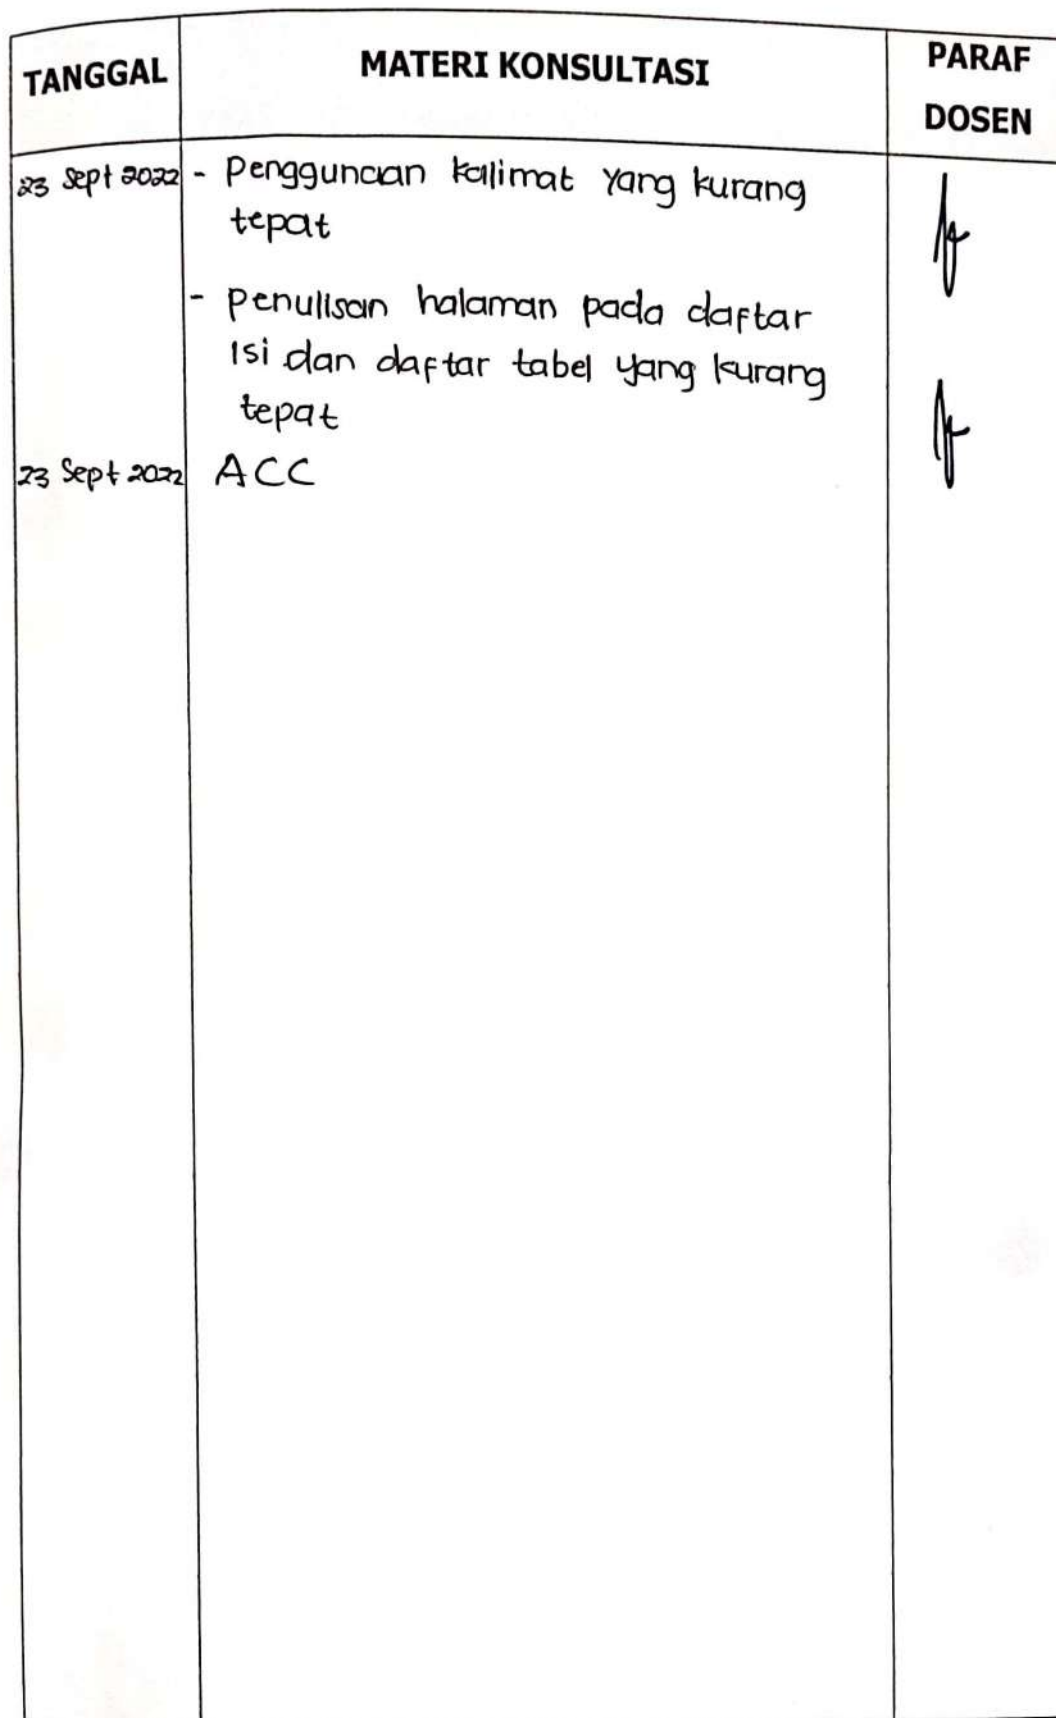 TANGGAL
MATERI KONSULTASI
PARAF
DOSEN
23 Sept 2022
- Penggunaan kalimat yang kurang
tepat
- Penulisan halaman pada daftar
isi dan daftar tabel yang kurang
tepat
23 Sept 2022
ACC